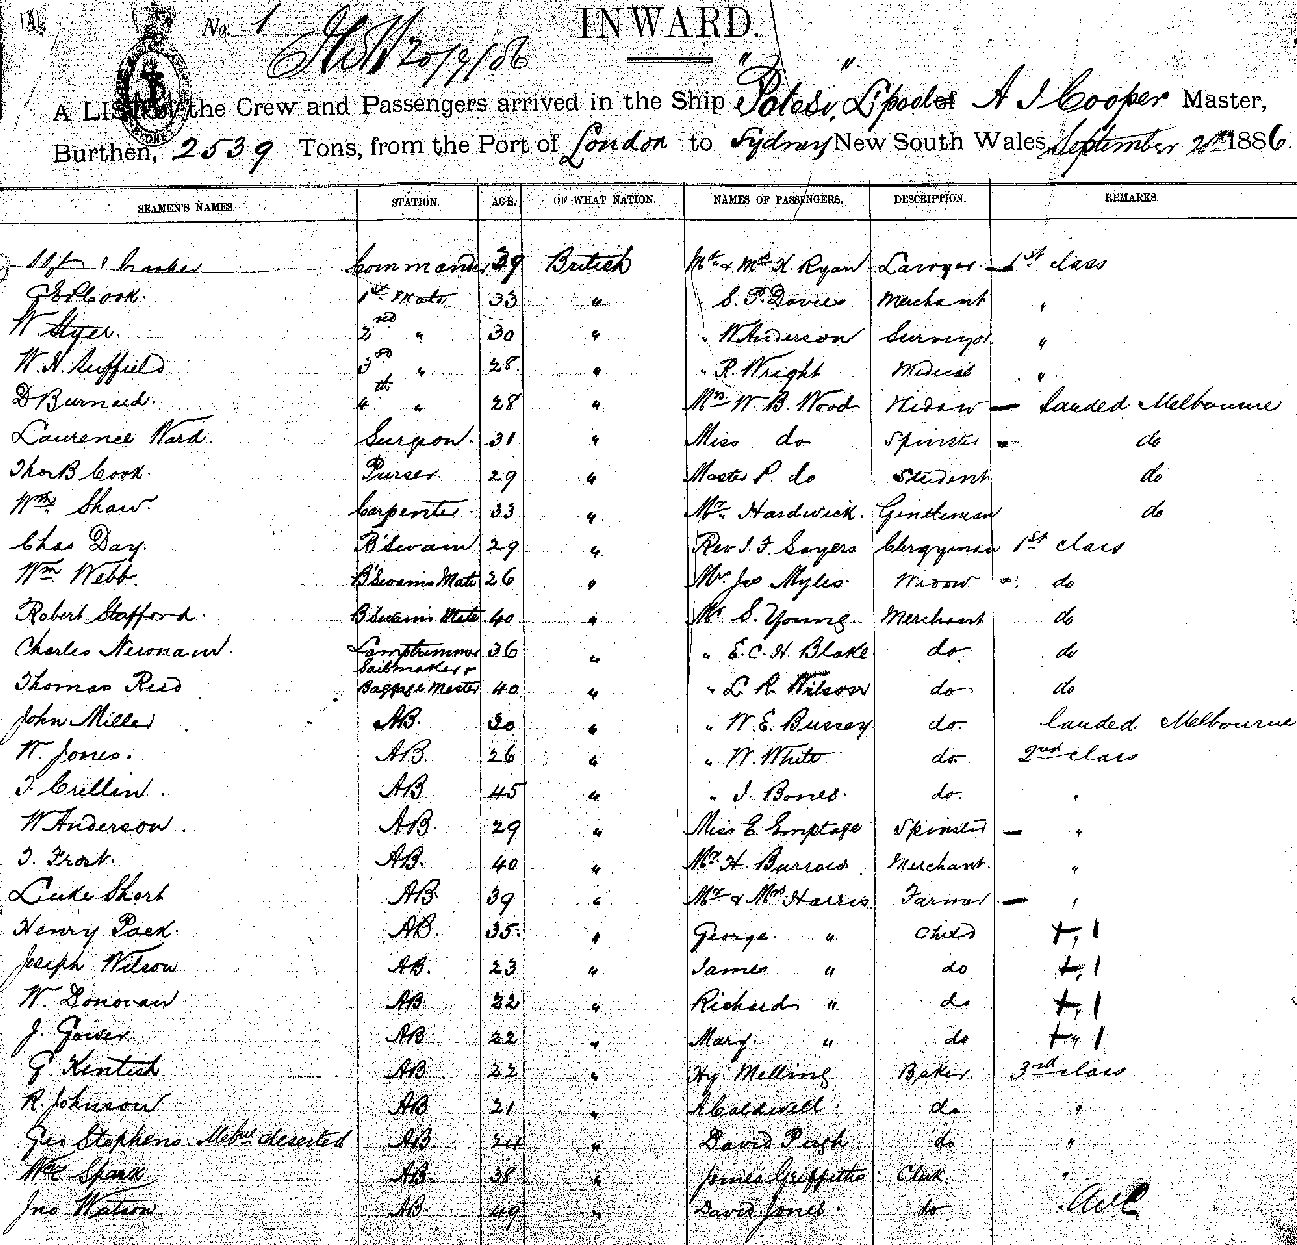 No. 1
20/9/86
INWARD.
A LIST of the Crew and Passengers arrived in the Ship "Potosi," Lpool of A J Cooper Master,
Burthen, 2539 Tons, from the Port of London to Sydney New South Wales, September 20th 1886.
SEAMEN'S NAMES. STATION. AGE. OF WHAT NATION. NAMES OF PASSENGERS. DESCRIPTION. REMARKS.
Commander 39 British Mr & Mrs K Ryan Lawyer — 1st class
Cook. 1st Mate 33 " S. P. Davies Merchant "
W Styer. 2nd " 30 " " W Anderson Surveyor "
W. H. Suffield 3rd " 28. " " R Wright Medical "
D Burnard. 4th " 28 " Mrs W B Wood Widow — landed Melbourne
Laurence Ward. Surgeon. 31 " Miss do Spinster — do
Thos B Cook. Purser 29 " Master P. do Student do
Wm Shaw. Carpenter 33 " Mr Hardwick. Gentleman do
Chas Day. B'Swain 29 " Rev J. F. Sayers Clergyman 1st class
Wm Webb. B'Swains Mate 26 " Mrs Jas Myles. Widow — do
Robert Stafford. B'Swains Mate 40 " Mr S. Young. Merchant do
Charles Newman. Lamptrimmer 36 " " E. C. H. Blake do. do
Thomas Reed Sailmaker & Baggage Master 40 " " L R. Wilson do do
John Miller AB. 30 " " W. E. Bussey do. landed Melbourne
W. Jones. AB. 26 " " W. White do 2nd class
T Crillin. AB 45 " " J. Bones. do. "
W Anderson. AB. 29 " Miss E Emptage Spinster — "
T. Frost. AB. 40 " Mr H Burrows Merchant. "
Luke Short AB. 39 " Mr & Mrs Harris. Farmer — "
Henry Pack. AB. 35. " George " Child +, 1
Joseph Wilson AB. 23 " James " do +, 1
W. Donovan AB 22 " Richard " do +, 1
J. Gower AB 22 " Mary " do +" 1
G Kentish AB 22 " Hy Melling Baker 3rd class
R Johnson AB 21 " Caldwell. do "
Geo Stephens deserted AB 24 " David Pugh do "
Wm Spark AB. 38 " James Griffiths Clerk "
Jno Watson AB. 49 " David Jones. do